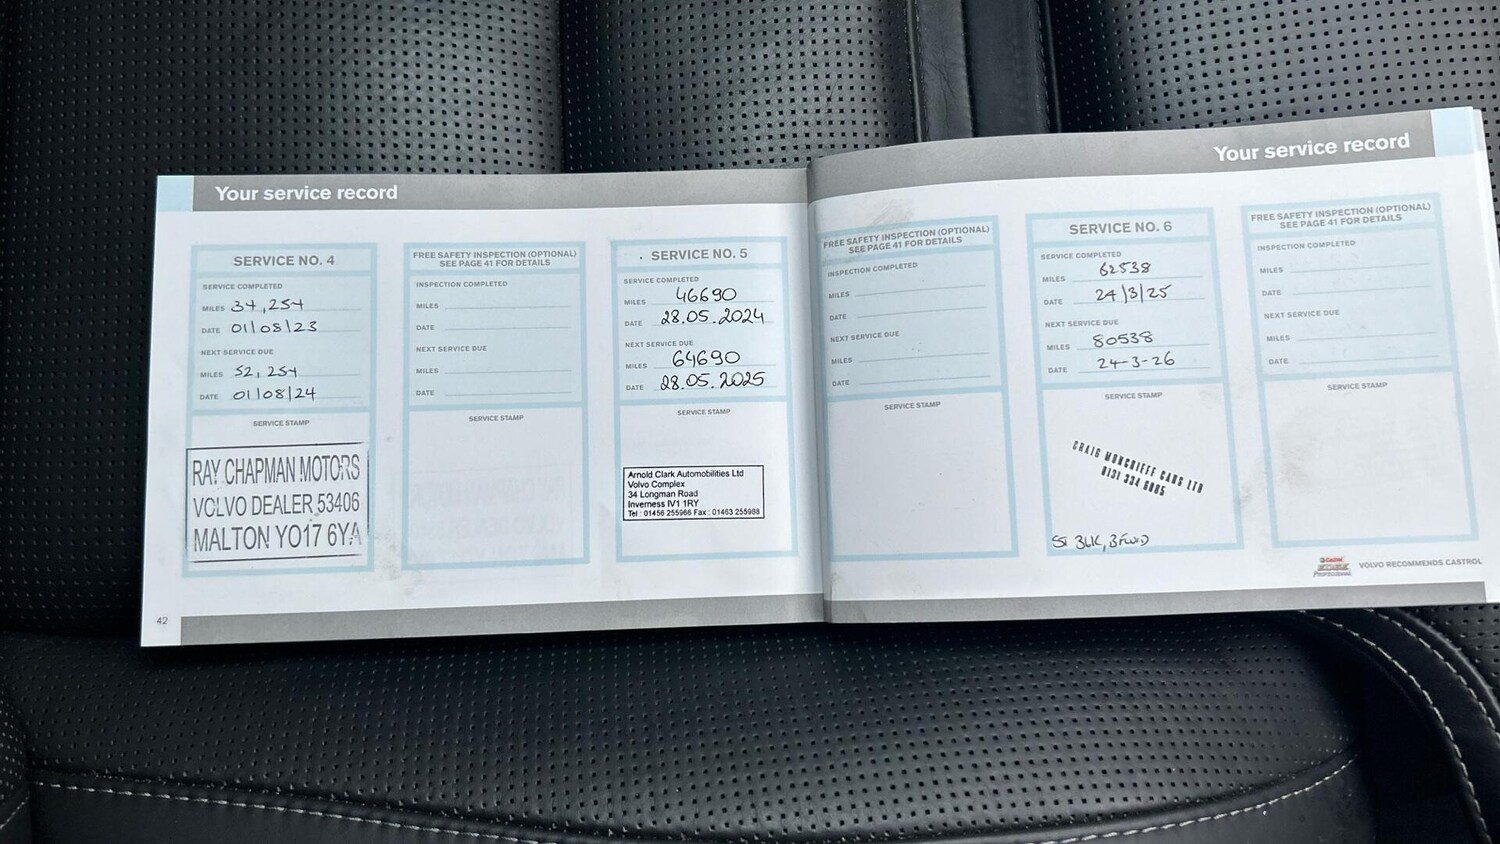 Your service record
SERVICE NO. 4
SERVICE COMPLETED
MILES 34,254
DATE 01/08/23
NEXT SERVICE DUE
MILES 52,254
DATE 01/08/24
SERVICE STAMP
RAY CHAPMAN MOTORS
VOLVO DEALER 53406
MALTON YO17 6YA
42
FREE SAFETY INSPECTION (OPTIONAL)
SEE PAGE 41 FOR DETAILS
INSPECTION COMPLETED
MILES
DATE
NEXT SERVICE DUE
MILES
DATE
SERVICE STAMP
SERVICE NO. 5
SERVICE COMPLETED
MILES 46690
DATE 28.05.2024
NEXT SERVICE DUE
MILES 64690
DATE 28.05.2025
SERVICE STAMP
Arnold Clark Automobilities Ltd
Volvo Complex
34 Longman Road
Inverness IV1 1RY
Tel : 01456 255966 Fax : 01463 255988
Your service record
FREE SAFETY INSPECTION (OPTIONAL)
SEE PAGE 41 FOR DETAILS
INSPECTION COMPLETED
MILES
DATE
NEXT SERVICE DUE
MILES
DATE
SERVICE STAMP
SERVICE NO. 6
SERVICE COMPLETED
MILES 62538
DATE 24/3/25
NEXT SERVICE DUE
MILES 80538
DATE 24-3-26
SERVICE STAMP
CRAIG MONCRIEFF CARS LTD
0131 334 6005
FREE SAFETY INSPECTION (OPTIONAL)
SEE PAGE 41 FOR DETAILS
INSPECTION COMPLETED
MILES
DATE
NEXT SERVICE DUE
MILES
DATE
SERVICE STAMP
Castrol
EDGE
Professional
VOLVO RECOMMENDS CASTROL